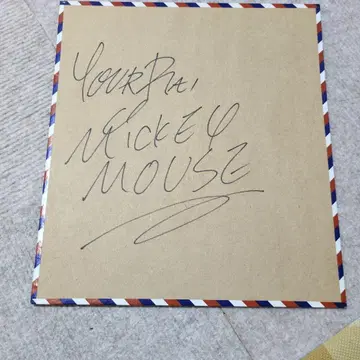 YOUR PAL
MICKEY
MOUSE